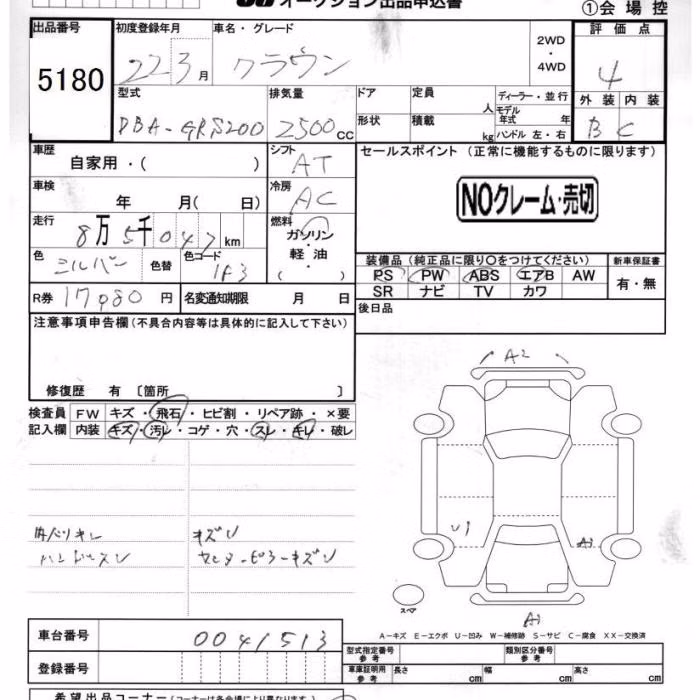 オークション出品申込書
①会場控
出品番号 初度登録年月 車名・グレード 評価点
5180 22 3月 クラウン 2WD・4WD 4
型式 排気量 ドア 定員 人 ディーラー・並行 外装 内装
DBA-GRS200 2500CC 形状 積載 kg モデル年式 年 B C
ハンドル 左・右
車歴 シフト セールスポイント(正常に機能するものに限ります)
自家用・( ) AT
車検 冷房 NOクレーム・売切
年 月( 日) AC
走行 8万5千047km 燃料
ガソリン・軽油
( )
色 シルバー 色替 色コード 1F3
装備品(純正品に限り○をつけてください) 新車保証書
PS PW ABS エアB AW 有・無
SR ナビ TV カワ
R券 17080円 名変通知期限 月 日 後日品
注意事項申告欄(不具合内容等は具体的に記入して下さい)
修復歴 有 〔箇所 〕
検査員 FW キズ・飛石・ヒビ割・リペア跡・×要
記入欄 内装 キズ・汚レ・コゲ・穴・スレ・キレ・破レ
キズU
ハンドルスレ
A2
U1
A1
スペア
A-キズ E-エクボ U-凹み W-補修跡 S-サビ C-腐食 XX-交換済
車台番号 0041513
登録番号
型式指定番号 参考 類別区分番号 参考
車庫証明用 参考 長さ cm 幅 cm 高さ cm
希望出品コーナー(コーナーは各会場により異なります)